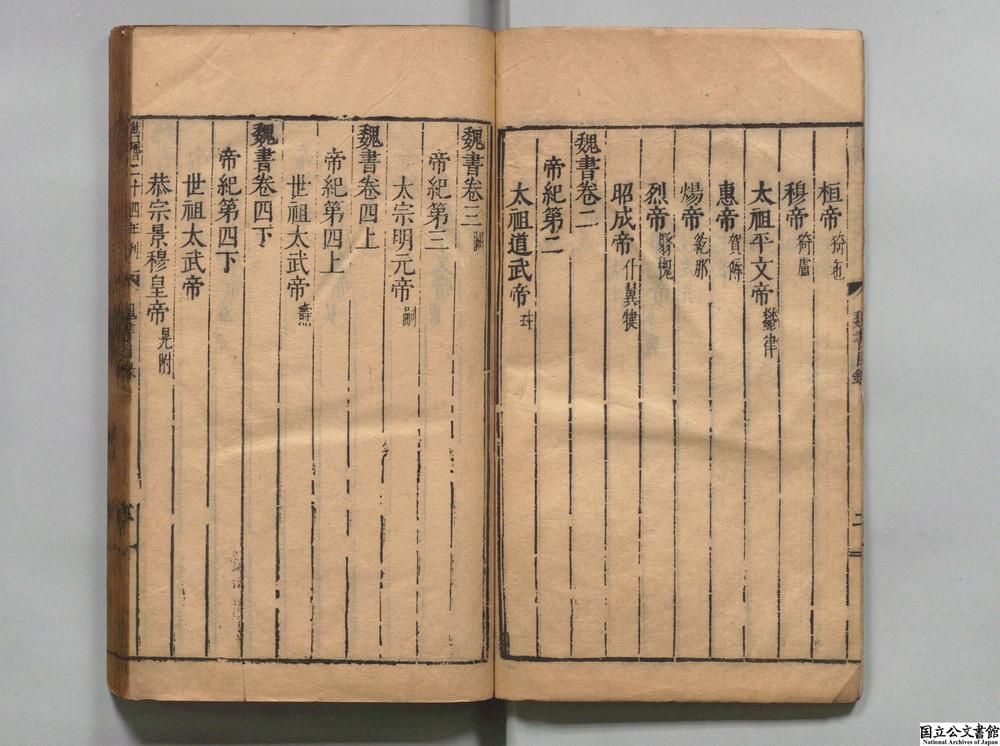 桓帝 猗㐌
穆帝 猗盧
太祖平文帝 鬱律
惠帝 賀傉
煬帝 紇那
烈帝 翳槐
昭成帝 什翼犍
魏書卷二
帝紀第二
太祖道武帝 珪
魏書卷三 闕
帝紀第三
太宗明元帝 嗣
魏書卷四上
帝紀第四上
世祖太武帝 燾
魏書卷四下
帝紀第四下
世祖太武帝
恭宗景穆皇帝 晃附
魏書目錄
二
二十四年刊
国立公文書館
National Archives of Japan